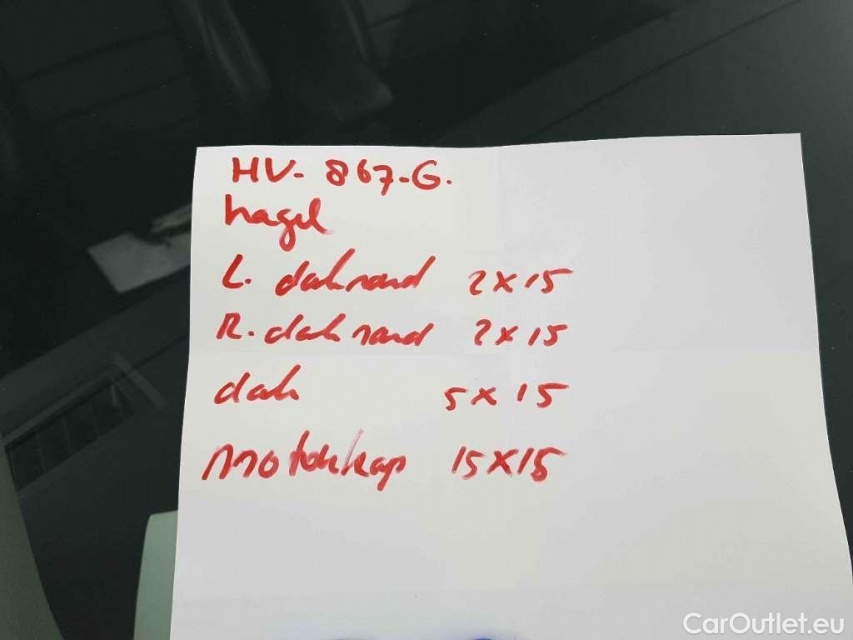 HV-867-G.
hagel
L. dakrand 2x15
R. dakrand 2x15
dak 5x15
motorkap 15x15
CarOutlet.eu